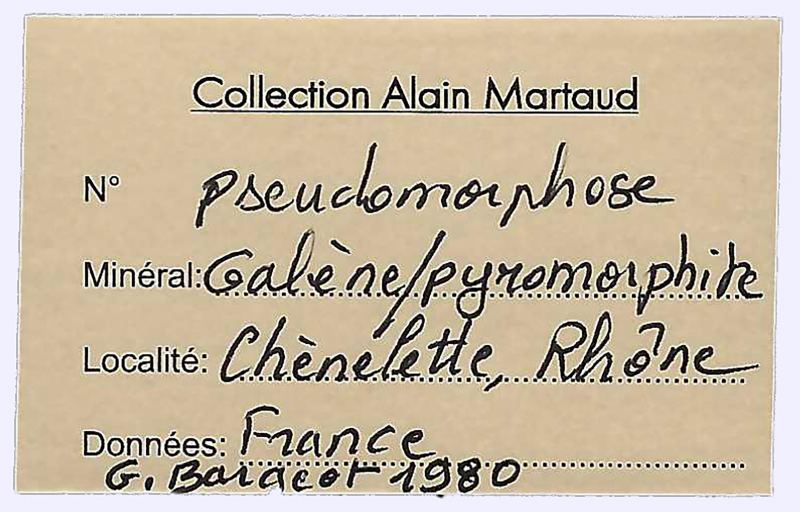 Collection Alain Martaud
N° pseudomorphose
Minéral: Galène/pyromorphite
Localité: Chènelette, Rhône
Données: France
G. Baracot 1980